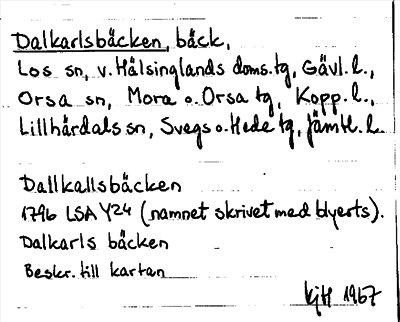 Dalkarlsbäcken, bäck,
Los sn, v. Hälsinglands doms.tg, Gävl. l.,
Orsa sn, Mora o. Orsa tg, Kopp. l.,
Lillhärdals sn, Svegs o. Hede tg, Jämtl. l.
Dallkallsbäcken
1796 LSA Y24 (namnet skrivet med blyerts).
Dalkarls bäcken
Beskr. till kartan
kjH 1967